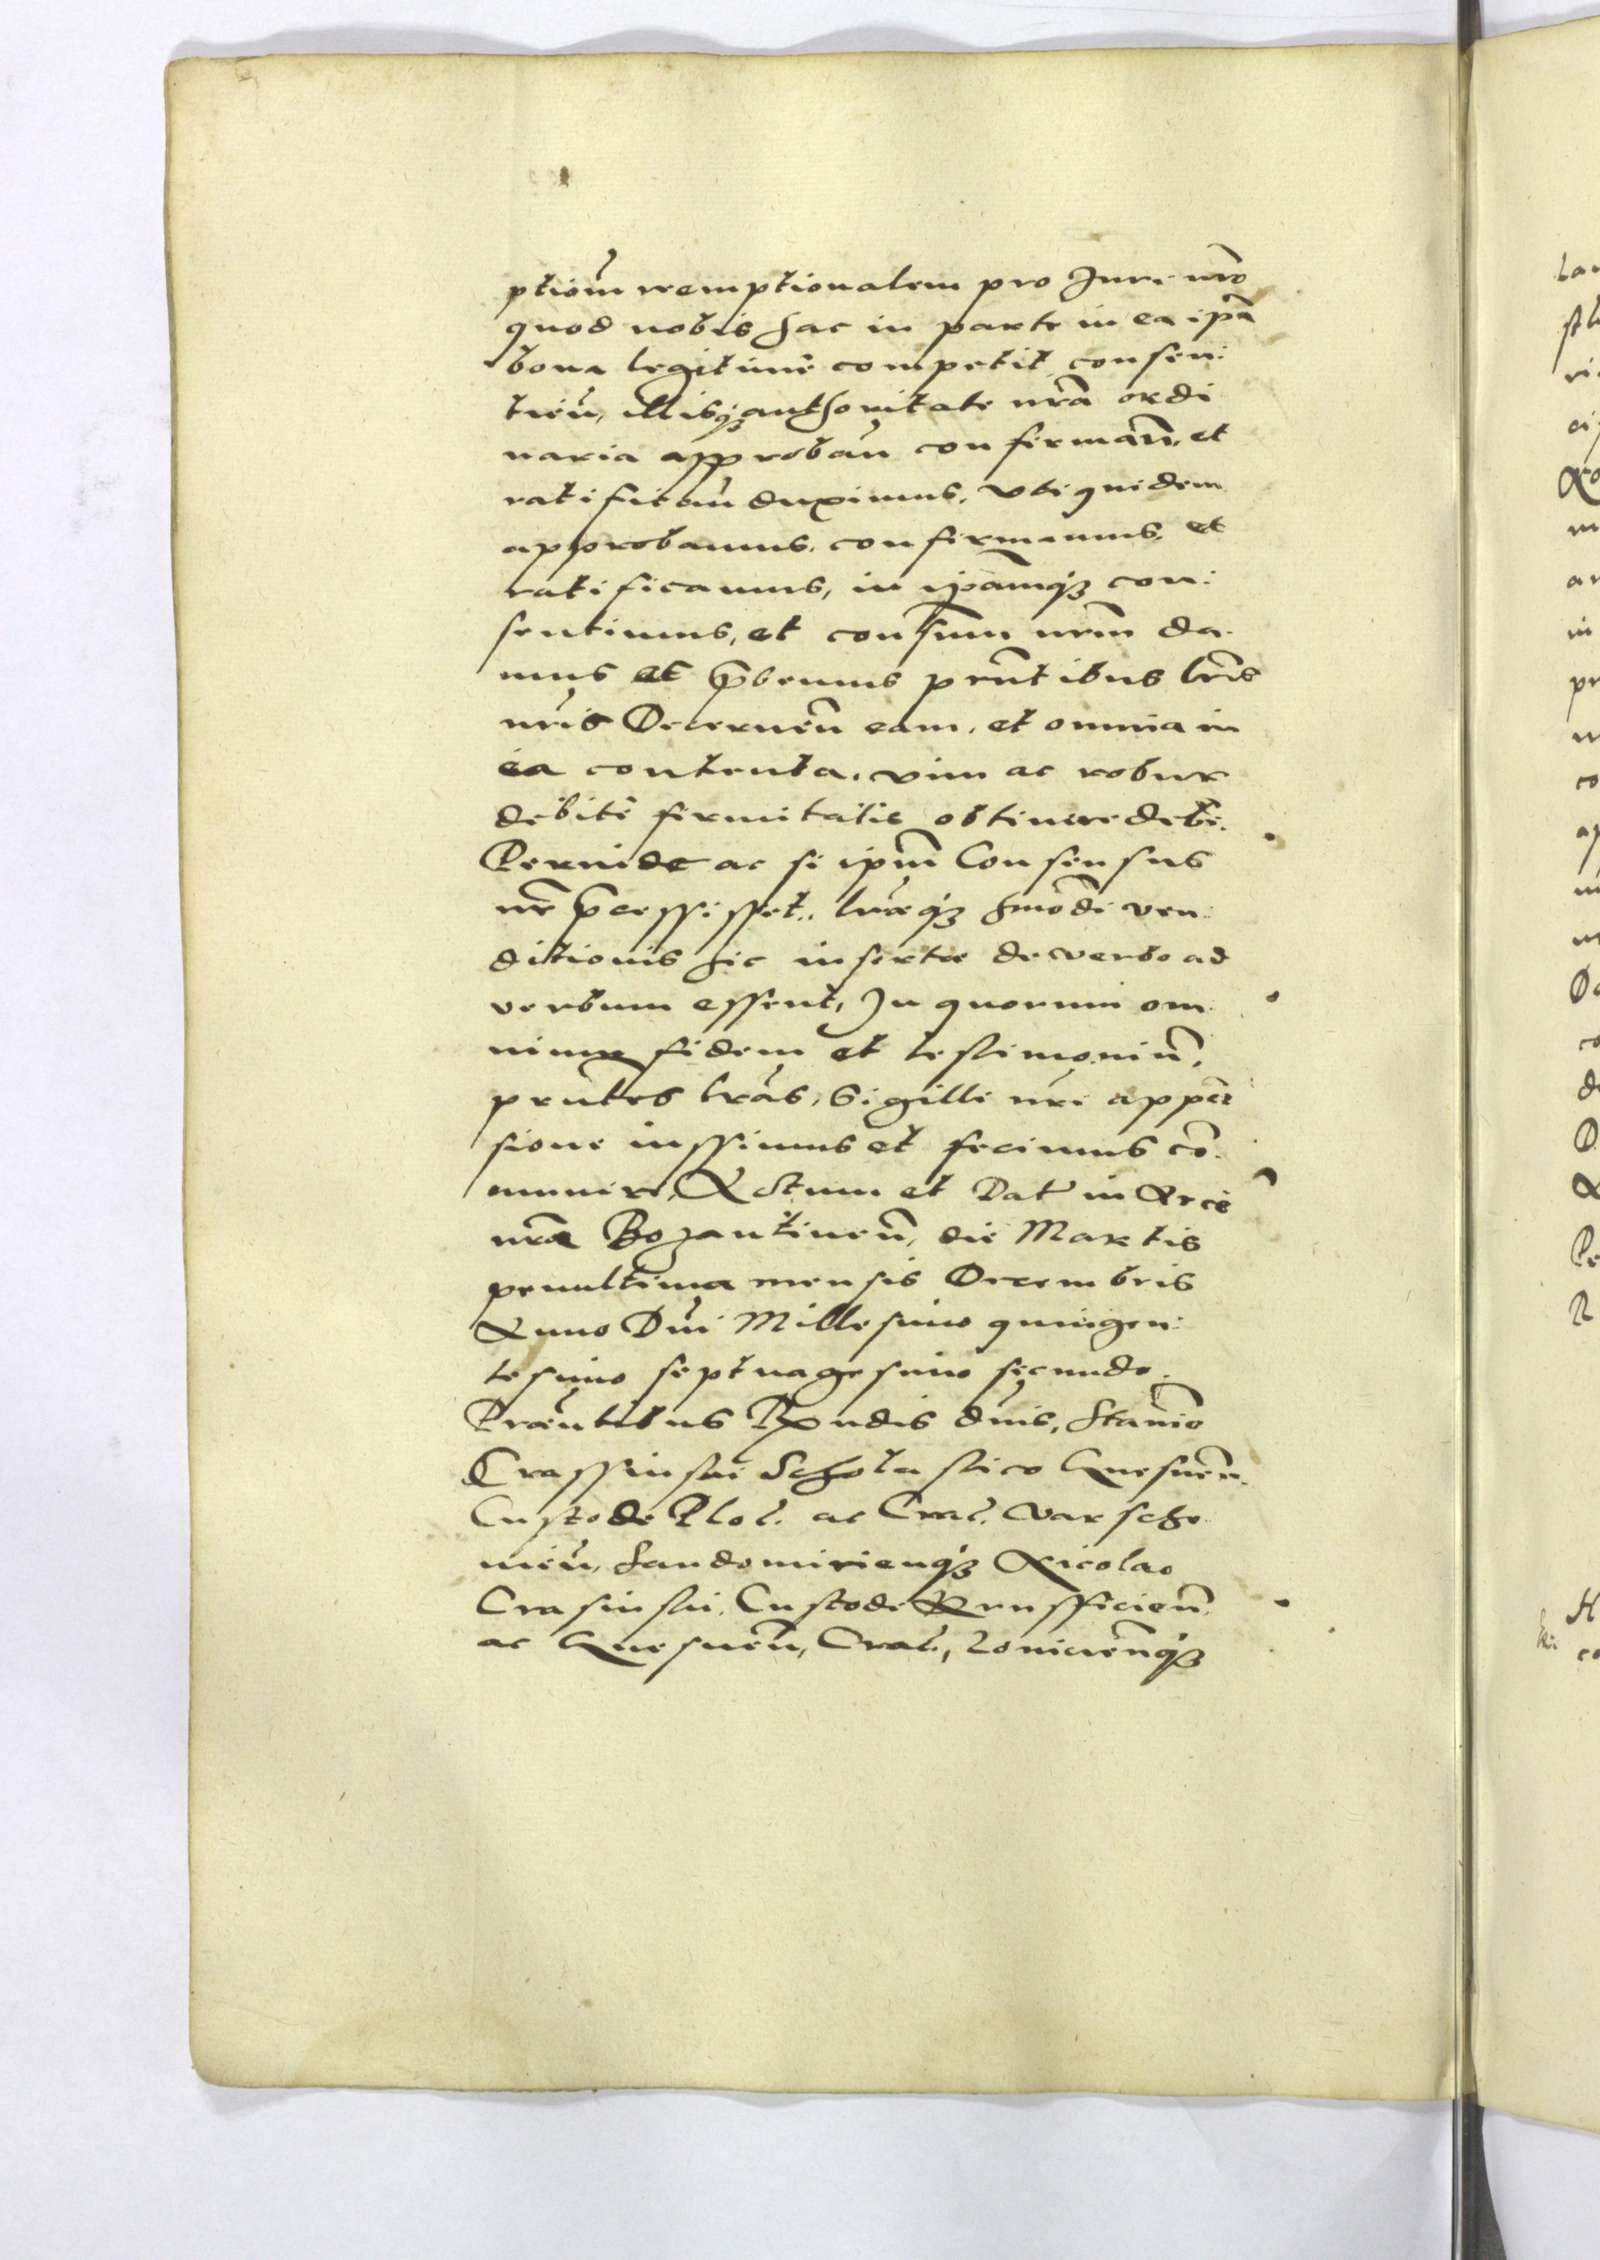 ptiom̃ reemptionalem pro Jure nr̃o
quod nobis hac in parte in ea ip̃a
bona legitime competit, consen:
tieñ, illisq3 authoritate nr̃a ordi
naria approbañ confirmañ, et
ratificañ duximus, Vti quidem
approbamus, confirmamus, et
ratificamus, in ip̃amq3 con:
sentimus, et consensum nr̃m da
mus et p̃bemus pr̃ntibus lr̃is
nr̃is Decerneñ eam, et omnia in
ea contenta, vim ac robur
debite firmitatis obtinere deb̃e.
Perinde ac si ip̃m Consensus
nr̃ p̃cessisset, lr̃æq3 hm̃odi ven:
ditionis hic insertæ de verbo ad
verbum essent, In quorum om
nium fidem et testimoniũ,
pr̃ntes lr̃as, Sigilli nr̃i appen
sione iussimus et fecimus cõ
muniri, Actum et Dat̃ in Arce
nr̃a Bozantineñ, die Martis
penultima mensis Decembris
Anno Dñi Millesimo quingen:
tesimo septuagesimo secundo.
Præñtibus Rx̃ndis dñis, Stanĩo
Crassinski Scholastico Gnesneñ.
Custode Ploc. ac Crac. Varscho
vieñ, Sandomirienq3 Nicolao
Crasinski, Custode Krusfficieñ
ac Gnesneñ, Crac., Lovicienq3